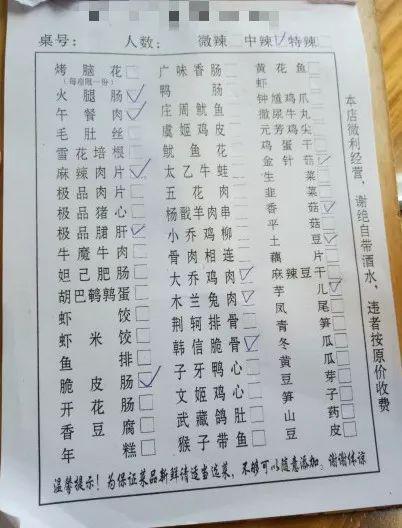 桌号: 人数: 微辣 中辣 特辣
烤脑花
(每座限一份)
火腿肠
午餐肉
毛肚丝
雪花培根
麻辣肉片
极品肉片
极品猪心
极品肝
牛魔牛肉
妲己肥肠
胡巴鹌鹑蛋
虾饺
虾米饺
鱼排
脆皮肠
开花肠
香豆腐
年糕
广味香肠
鸭肠
庄周鱿鱼
虞姬鸡皮
鱿鱼花
太乙牛蛙
五花肉
杨戬羊肉串
小乔鸡柳
骨肉相连
大乔鸡肉
木兰兔肉
荆轲排骨
韩信脆骨
子牙鸭心
文姬鸡心
武藏鸽肚
猴子带鱼
黄花鱼
虾
钟馗鸡爪
撒尿牛丸
元芳鸡尖
鸡蛋干
金针菇
生菜
韭菜
香菇
平菇
土豆
藕片
麻辣豆干
芋儿
凤尾
青笋
冬瓜
黄瓜
豆芽
笋子
山药
豆皮
本店微利经营，谢绝自带酒水，违者按原价收费
温馨提示! 为保证菜品新鲜请适当选菜，不够可以随意添加。谢谢体谅